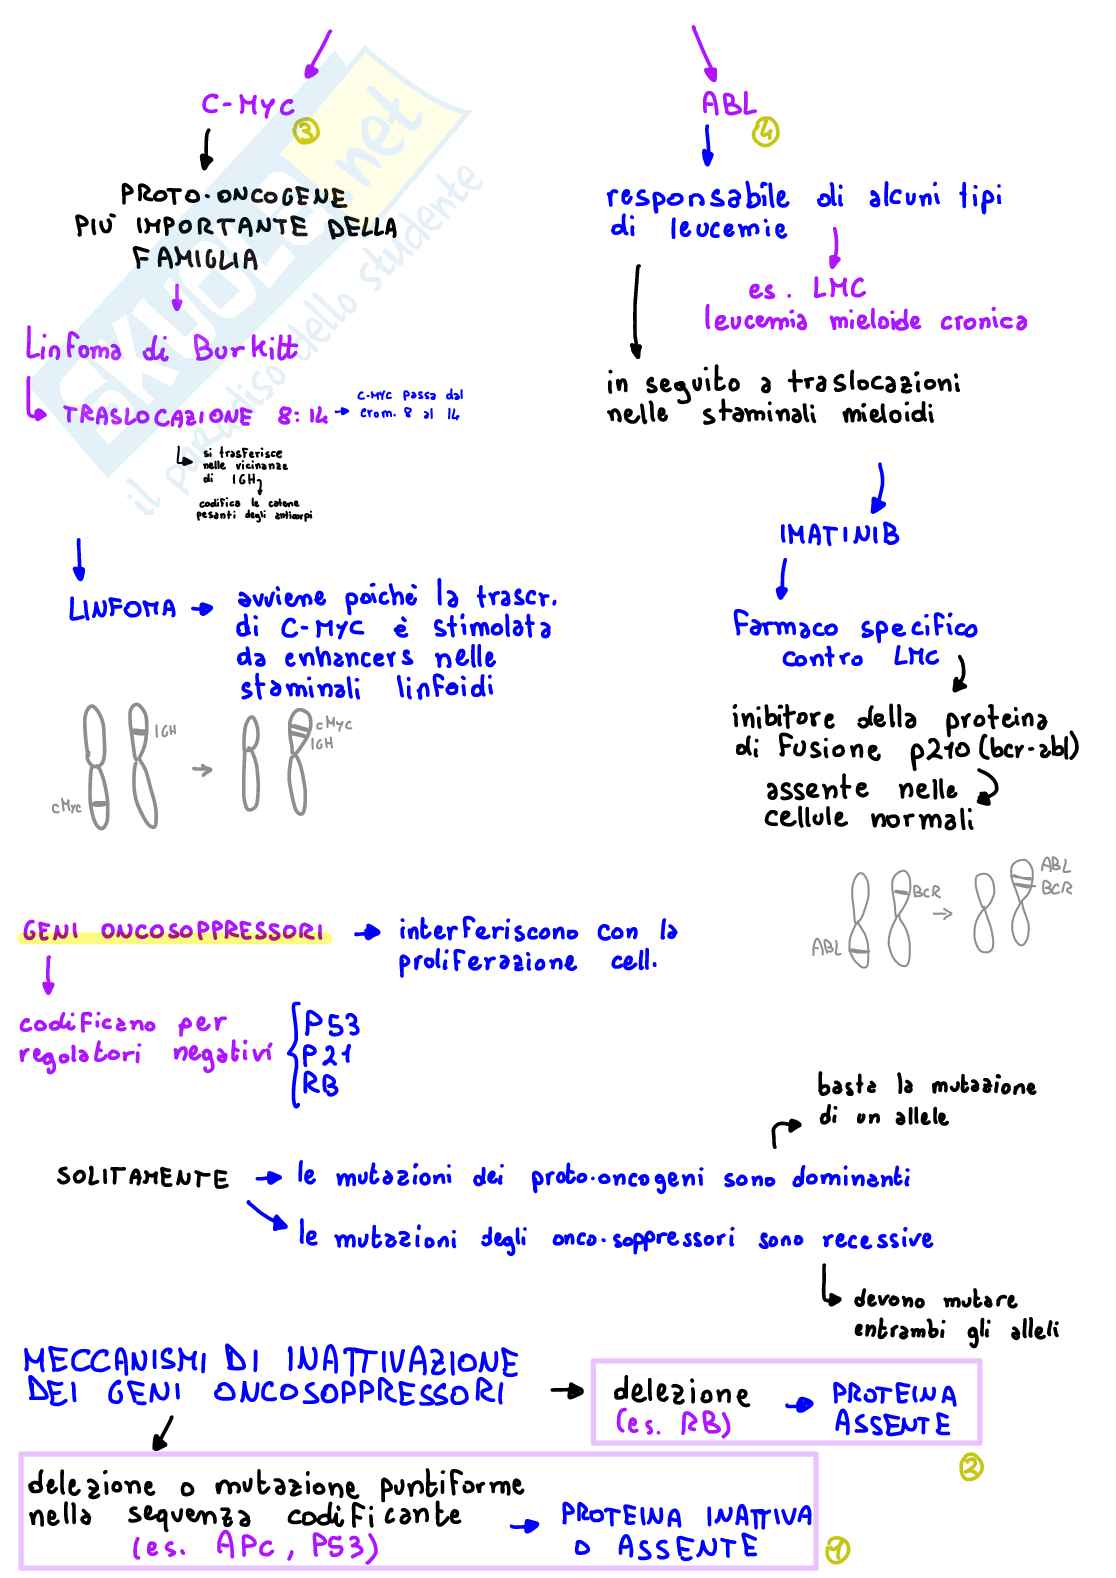 C-MYC
3
PROTO-ONCOGENE
PIU' IMPORTANTE DELLA
FAMIGLIA
Linfoma di Burkitt
TRASLOCAZIONE 8:14
C-MYC passa dal
crom. 8 al 14
si trasferisce
nelle vicinanze
di IGH
codifica le catene
pesanti degli anticorpi
LINFOMA
avviene poiché la trascr.
di C-MYC è stimolata
da enhancers nelle
staminali linfoidi
IGH
cMyc
cMYC
IGH
ABL
4
responsabile di alcuni tipi
di leucemie
es. LMC
leucemia mieloide cronica
in seguito a traslocazioni
nelle staminali mieloidi
IMATINIB
Farmaco specifico
contro LMC
inibitore della proteina
di fusione p210 (bcr-abl)
assente nelle
cellule normali
ABL
BCR
ABL
BCR
SKUOLA.net
il paradiso dello studente
GENI ONCOSOPPRESSORI
interferiscono con la
proliferazione cell.
codificano per
regolatori negativi
P53
P21
RB
basta la mutazione
di un allele
SOLITAMENTE
le mutazioni dei proto-oncogeni sono dominanti
le mutazioni degli onco-soppressori sono recessive
devono mutare
entrambi gli alleli
MECCANISMI DI INATTIVAZIONE
DEI GENI ONCOSOPPRESSORI
delezione
(es. RB)
PROTEINA
ASSENTE
2
delezione o mutazione puntiforme
nella sequenza codificante
(es. APC, P53)
PROTEINA INATTIVA
O ASSENTE
1